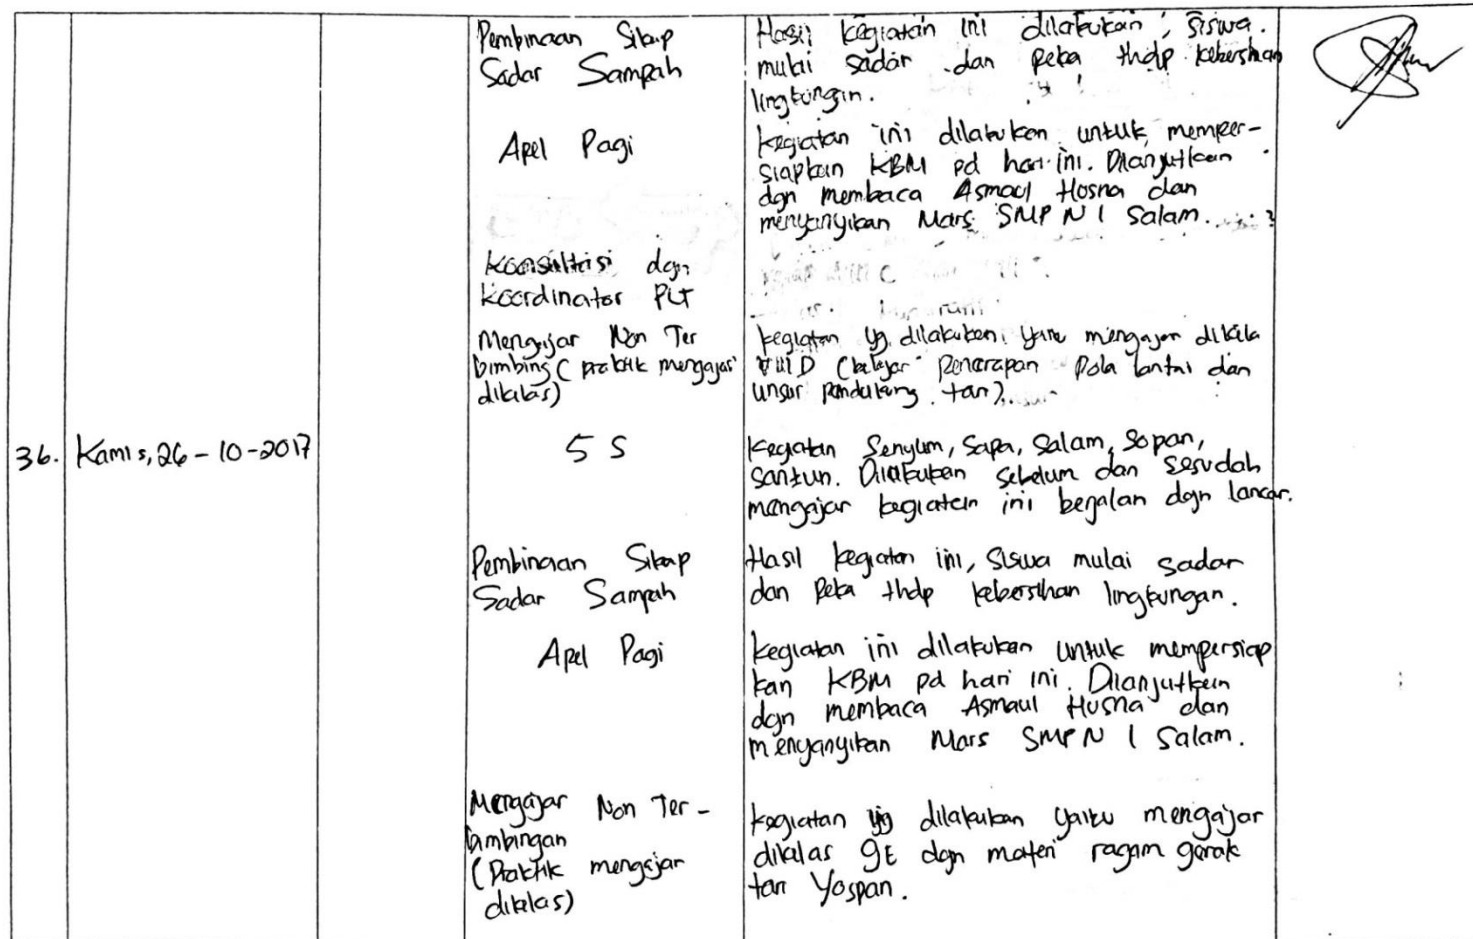 Pembinaan Sikap
Sadar Sampah
Hasil kegiatan ini dilakukan, siswa.
mulai sadar dan peka thdp kebersihan
lingkungan.
Apel Pagi
kegiatan ini dilakukan untuk memper-
siapkan KBM pd hari ini. Dilanjutkan
dgn membaca Asmaul Hosna dan
menyanyikan Mars SMP N 1 Salam.
Konsultasi dgn
koordinator PLT
Mengajar Non Ter
bimbing (praktik mengajar
dikelas)
kegiatan yg dilakukan yaitu mengajar dikelas
VIII D (belajar Penerapan Pola lantai dan
unsur pendukung tari).
36. Kamis, 26-10-2017
5 S
kegiatan Senyum, Sapa, Salam, Sopan,
Santun. Dilakukan sebelum dan sesudah
mengajar kegiatan ini berjalan dgn lancar.
Pembinaan Sikap
Sadar Sampah
Hasil kegiatan ini, Siswa mulai sadar
dan peka thdp kebersihan lingkungan.
Apel Pagi
kegiatan ini dilakukan untuk mempersiap
kan KBM pd hari ini. Dilanjutkan
dgn membaca Asmaul Husna dan
menyanyikan Mars SMP N 1 Salam.
Mengajar Non Ter-
bimbingan
(Praktik mengajar
dikelas)
kegiatan yg dilakukan yaitu mengajar
dikelas 9E dgn materi ragam gerak
tari Yospan.